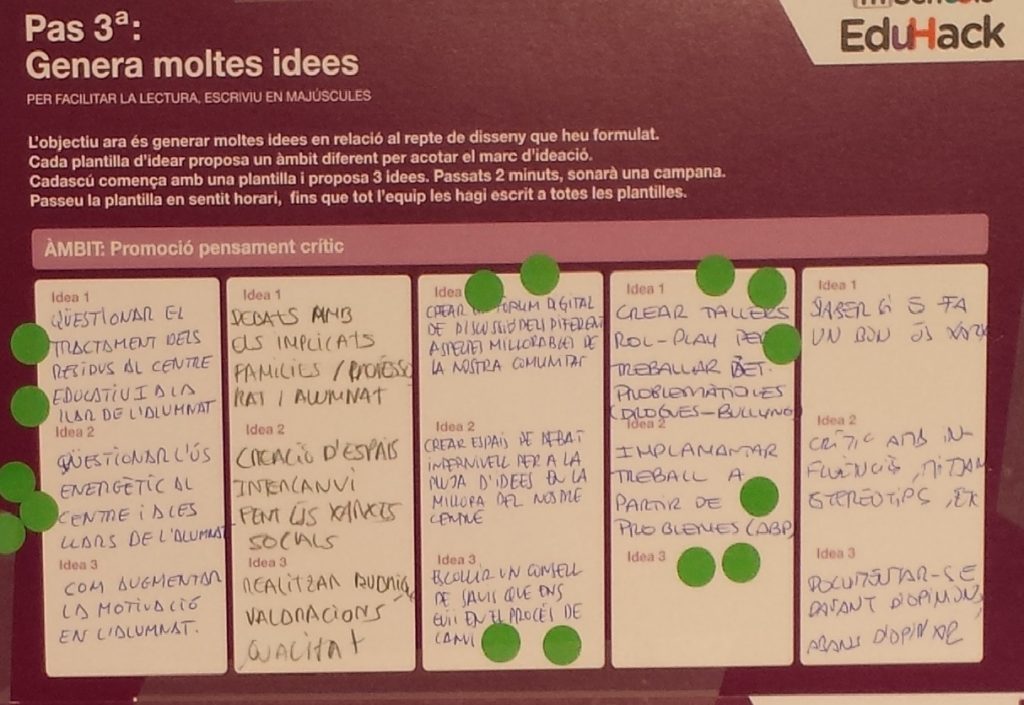 Schools
EduHack
Pas 3ª:
Genera moltes idees
PER FACILITAR LA LECTURA, ESCRIVIU EN MAJÚSCULES
L'objectiu ara és generar moltes idees en relació al repte de disseny que heu formulat.
Cada plantilla d'idear proposa un àmbit diferent per acotar el marc d'ideació.
Cadascú comença amb una plantilla i proposa 3 idees. Passats 2 minuts, sonarà una campana.
Passeu la plantilla en sentit horari, fins que tot l'equip les hagi escrit a totes les plantilles.
ÀMBIT: Promoció pensament crític
Idea 1
QÜESTIONAR EL
TRACTAMENT DELS
RESIDUS AL CENTRE
EDUCATIU I A LA
LLAR DE L'ALUMNAT
Idea 2
QÜESTIONAR L'ÚS
ENERGÈTIC AL
CENTRE I A LES
LLARS DE L'ALUMNAT
Idea 3
COM AUGMENTAR
LA MOTIVACIÓ
EN L'ALUMNAT.
Idea 1
DEBATS AMB
ELS IMPLICATS
FAMILIES / PROFESSO
RAT I ALUMNAT
Idea 2
CREACIÓ D'ESPAIS
INTERCANVI
FENT ÚS XARXES
SOCIALS
Idea 3
REALITZAR
VALORACIONS
Idea
CREAR FORUM DIGITAL
DE DISCUSSIÓ DELS DIFERENT
ASPECTES MILLORABLES DE
LA NOSTRA COMUNITAT
Idea 2
CREAR ESPAIS DE DEBAT
INTERNIVELL PER A LA
PLUJA D'IDEES EN LA
MILLORA DEL NOSTRE
CENTRE
Idea 3
ESCOLLIR UN CONSELL
DE SAVIS QUE ENS
GUII EN EL PROCÉS DE
CANVI
Idea 1
CREAR TALLERS
ROL-PLAY PER
TREBALLAR DET.
PROBLEMÀTIQUES
(DROGUES-BULLYING)
Idea 2
IMPLAMANTAR
TREBALL A
PARTIR DE
PROBLEMES (ABP)
Idea 3
Idea 1
SABER SI ES FA
UN BON ÚS XARX
Idea 2
CRÍTIC AMB IN-
FLUÈNCIES, MITJANS
ESTEREOTIPS,
Idea 3
DOCUMENTAR-SE
DAVANT D'OPINIONS,
ABANS D'OPINAR